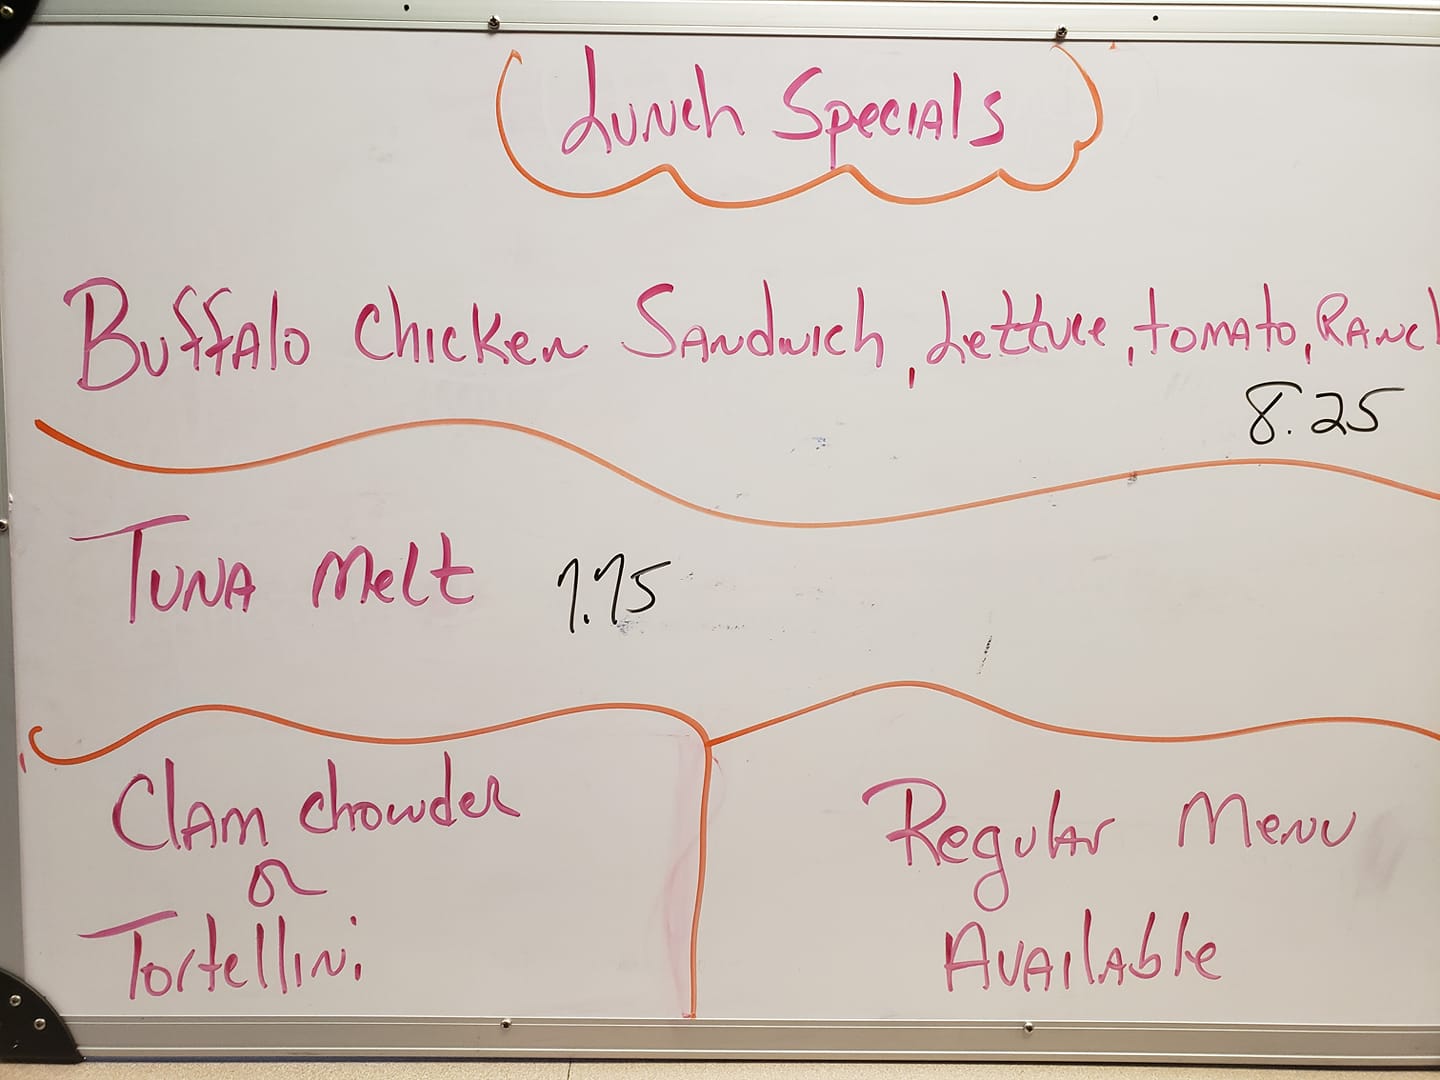 Lunch Specials
Buffalo Chicken Sandwich, Lettuce, tomato, Ranch
8.25
Tuna Melt 7.75
Clam Chowder
or
Tortellini
Regular Menu
Available